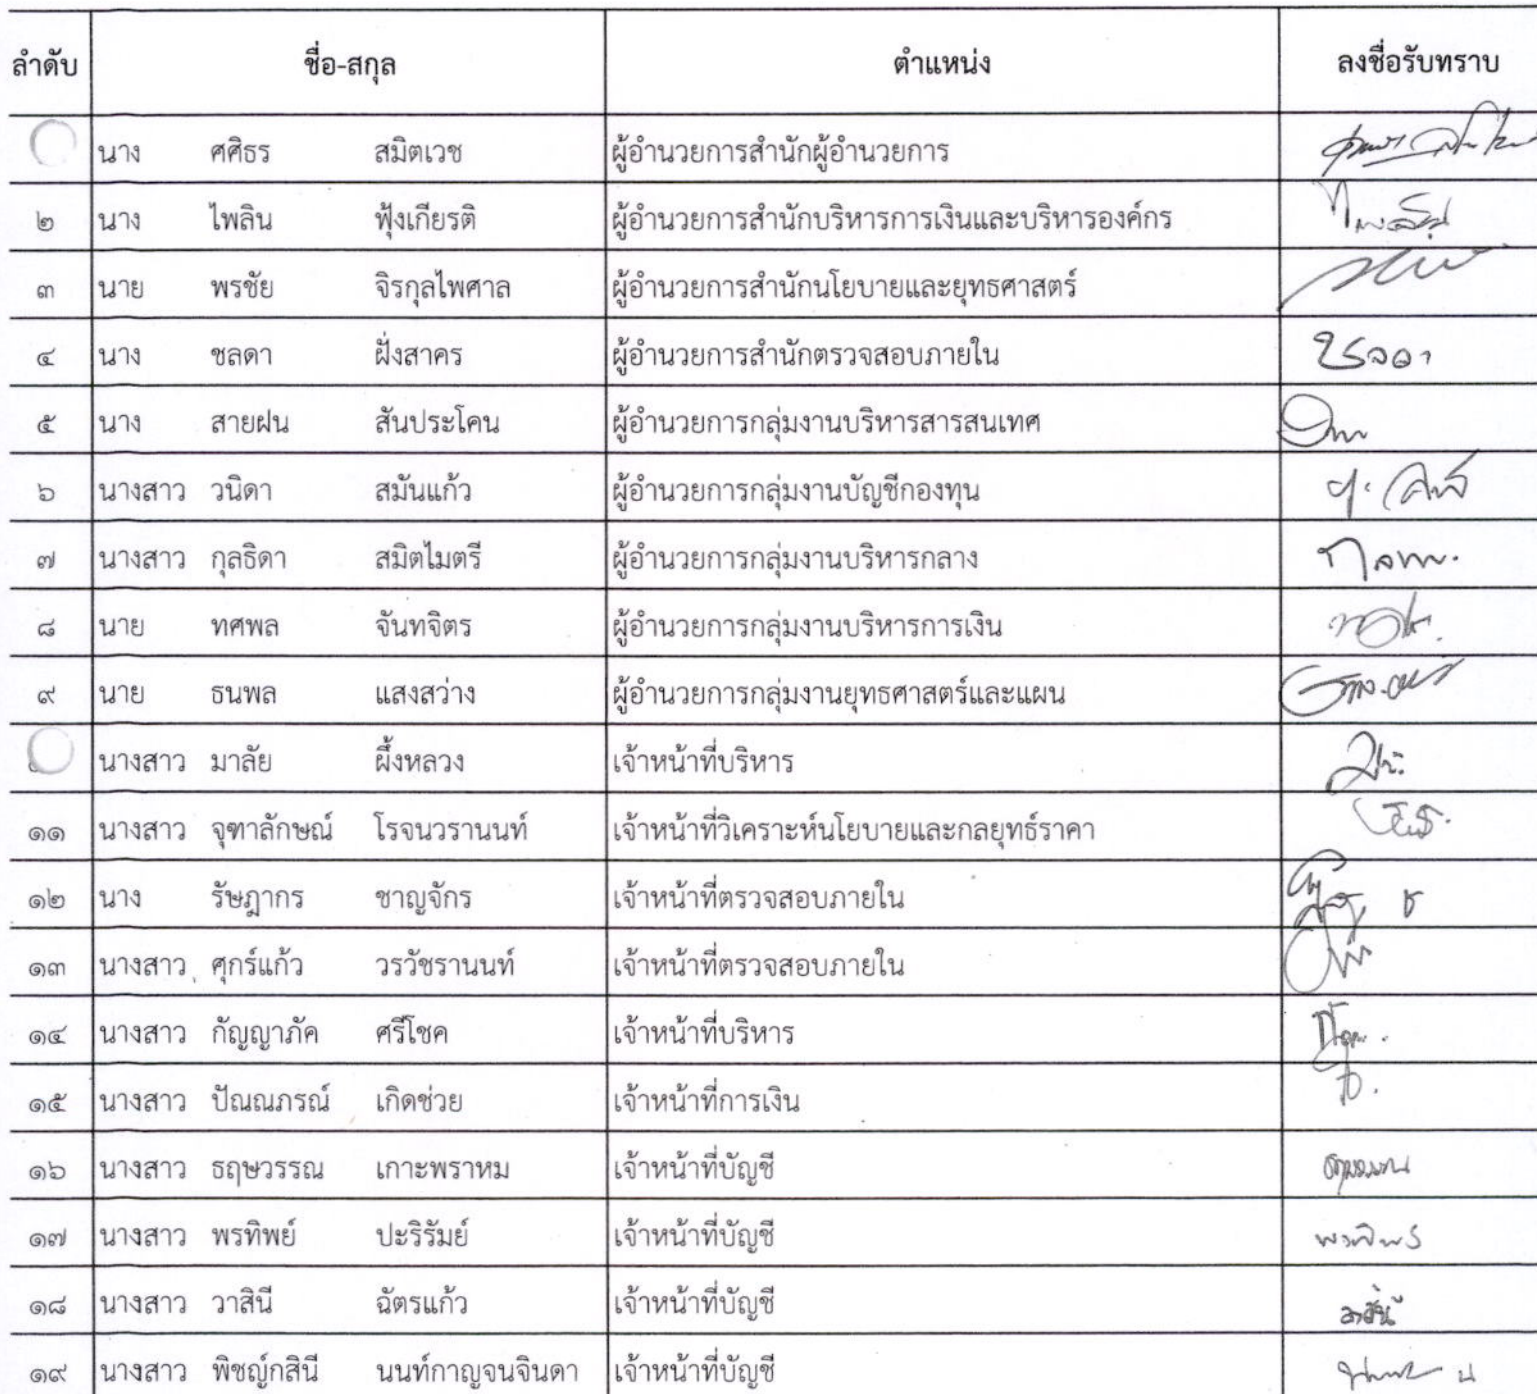 ลำดับ ชื่อ-สกุล ตำแหน่ง ลงชื่อรับทราบ
นาง ศศิธร สมิตเวช ผู้อำนวยการสำนักผู้อำนวยการ
๒ นาง ไพลิน ฟุ้งเกียรติ ผู้อำนวยการสำนักบริหารการเงินและบริหารองค์กร
๓ นาย พรชัย จิรกุลไพศาล ผู้อำนวยการสำนักนโยบายและยุทธศาสตร์
๔ นาง ชลดา ฝั่งสาคร ผู้อำนวยการสำนักตรวจสอบภายใน
๕ นาง สายฝน สันประโคน ผู้อำนวยการกลุ่มงานบริหารสารสนเทศ
๖ นางสาว วนิดา สมันแก้ว ผู้อำนวยการกลุ่มงานบัญชีกองทุน
๗ นางสาว กุลธิดา สมิตไมตรี ผู้อำนวยการกลุ่มงานบริหารกลาง
๘ นาย ทศพล จันทจิตร ผู้อำนวยการกลุ่มงานบริหารการเงิน
๙ นาย ธนพล แสงสว่าง ผู้อำนวยการกลุ่มงานยุทธศาสตร์และแผน
นางสาว มาลัย ผึ้งหลวง เจ้าหน้าที่บริหาร
๑๑ นางสาว จุฑาลักษณ์ โรจนวรานนท์ เจ้าหน้าที่วิเคราะห์นโยบายและกลยุทธ์ราคา
๑๒ นาง รัษฎากร ชาญจักร เจ้าหน้าที่ตรวจสอบภายใน
๑๓ นางสาว ศุกร์แก้ว วรวัชรานนท์ เจ้าหน้าที่ตรวจสอบภายใน
๑๔ นางสาว กัญญาภัค ศรีโชค เจ้าหน้าที่บริหาร
๑๕ นางสาว ปัณณภรณ์ เกิดช่วย เจ้าหน้าที่การเงิน
๑๖ นางสาว ธฤษวรรณ เกาะพราหม เจ้าหน้าที่บัญชี
๑๗ นางสาว พรทิพย์ ปะริรัมย์ เจ้าหน้าที่บัญชี
๑๘ นางสาว วาสินี ฉัตรแก้ว เจ้าหน้าที่บัญชี
๑๙ นางสาว พิชญ์กสินี นนท์กาญจนจินดา เจ้าหน้าที่บัญชี